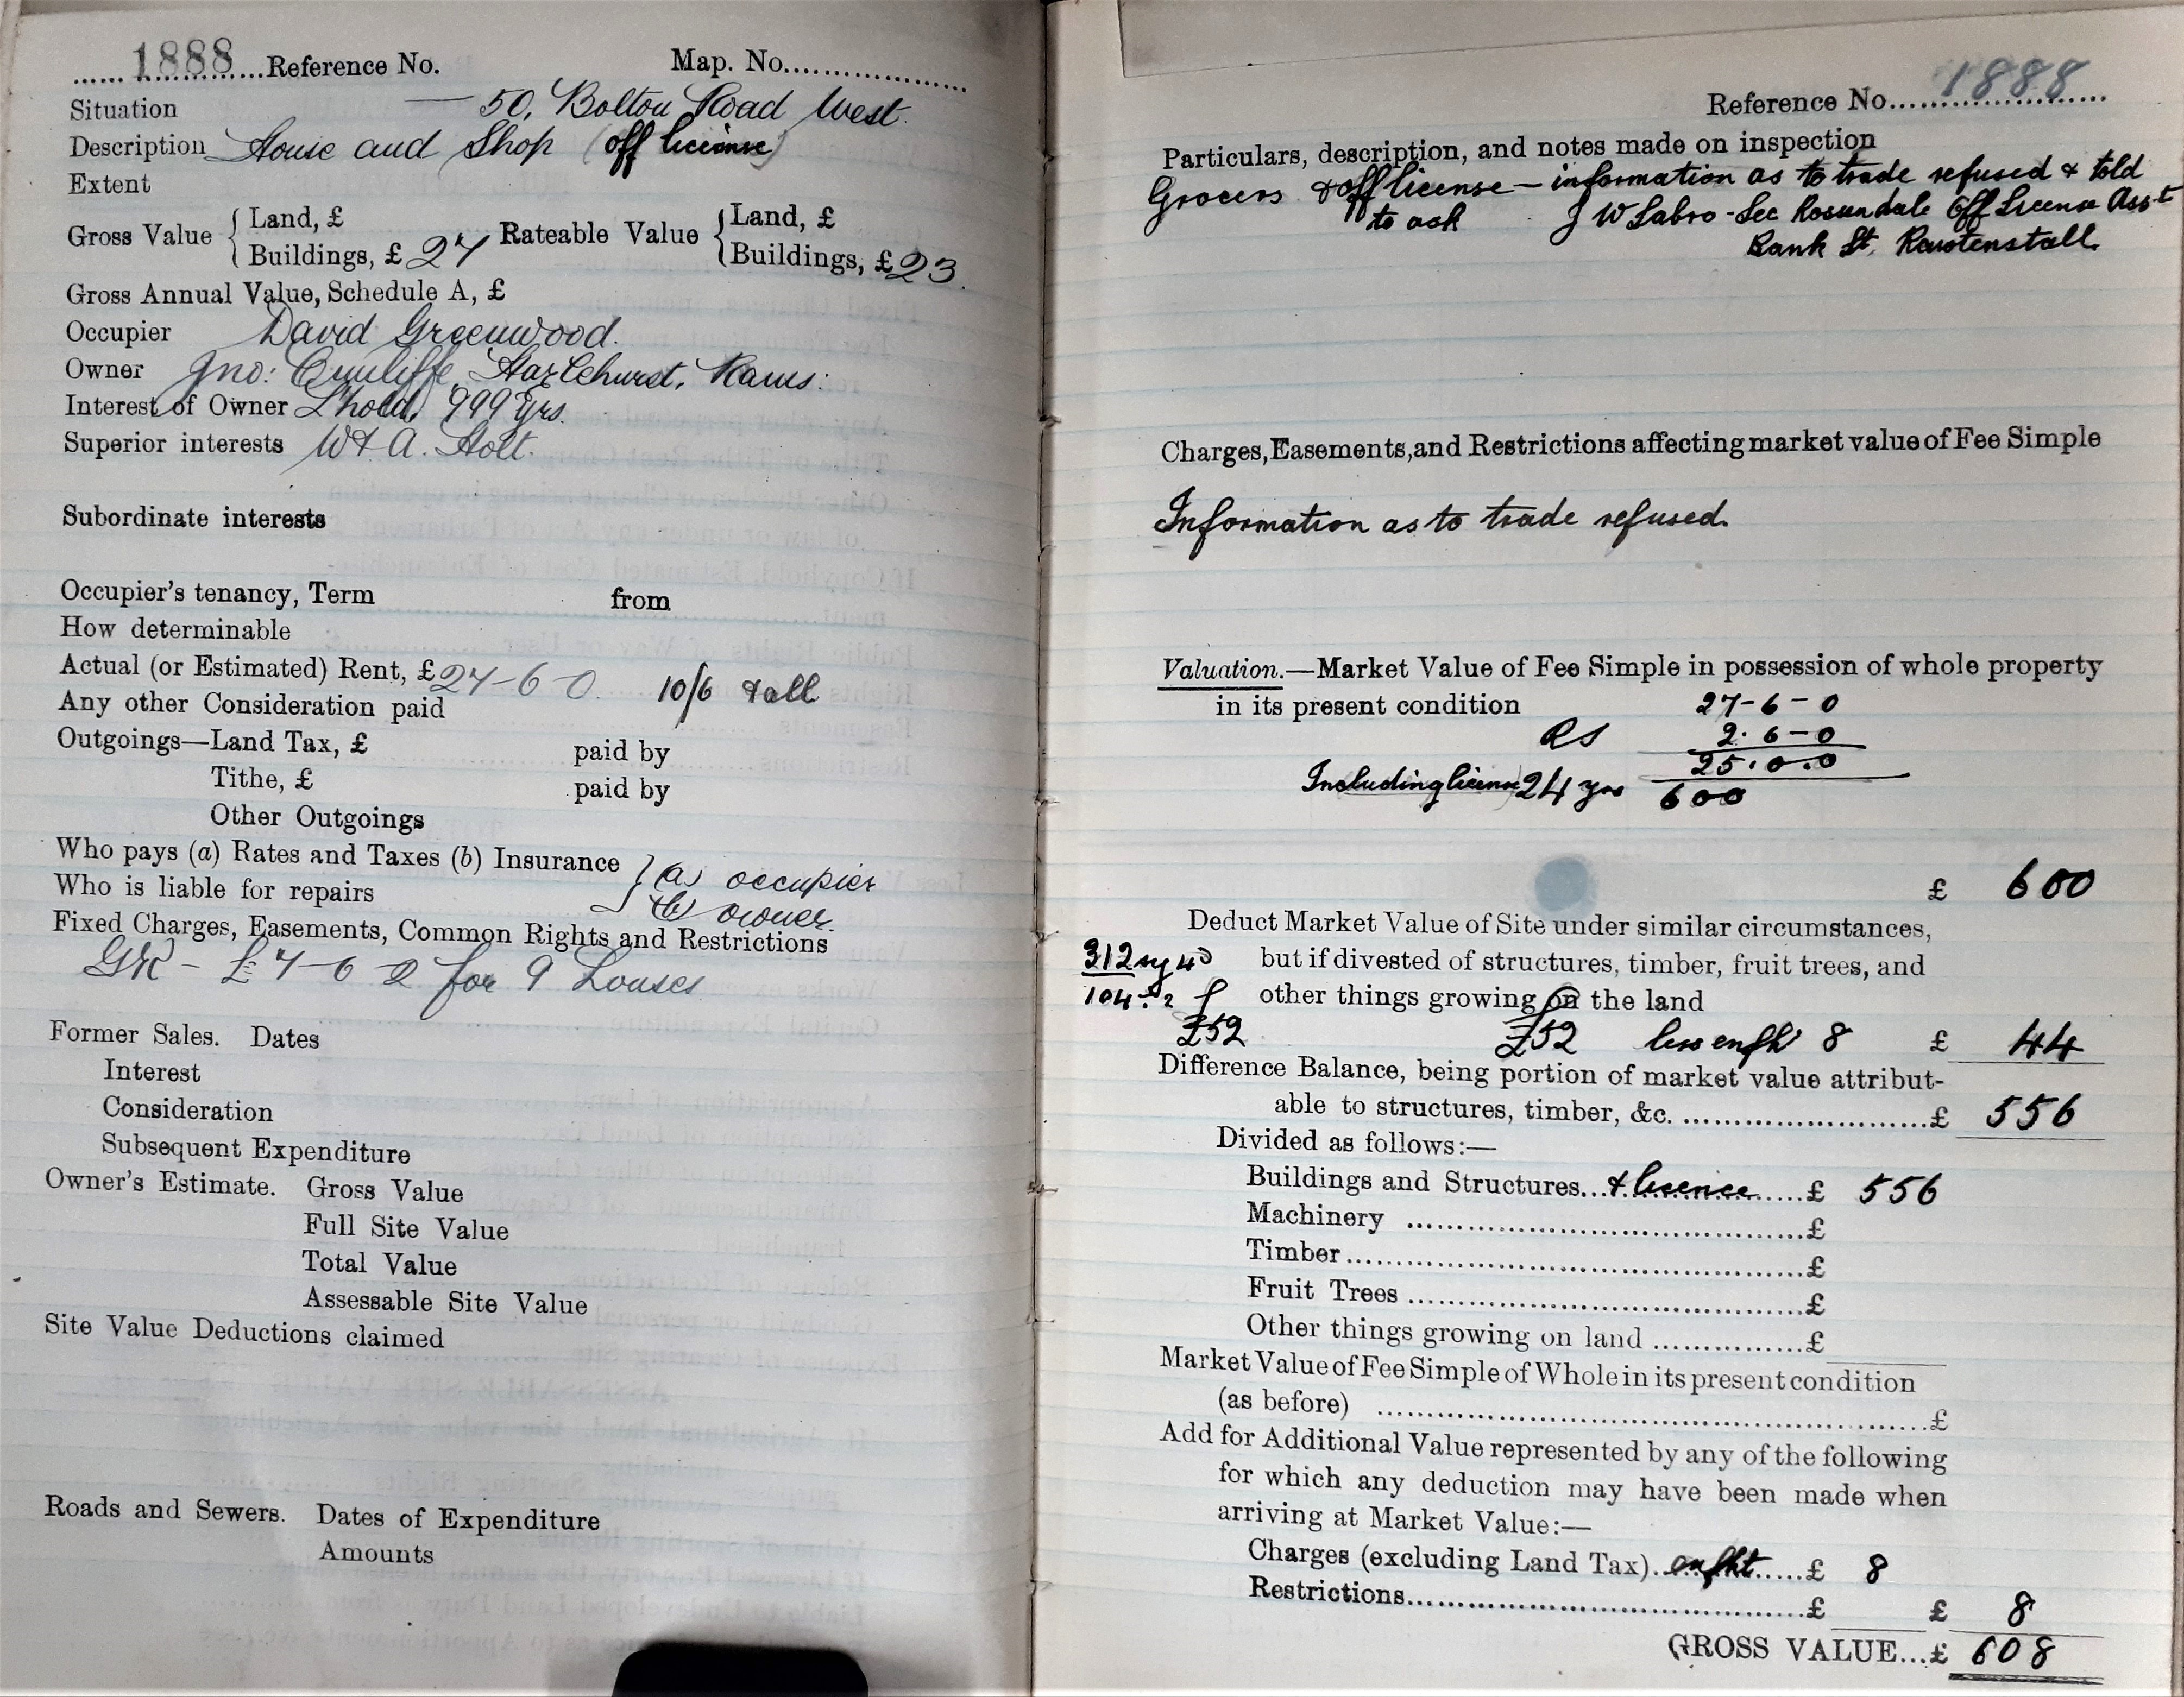 1888 Reference No. Map. No.
Situation — 50, Bolton Road West.
Description House and Shop (off license)
Extent
Gross Value { Land, £ Rateable Value { Land, £
Buildings, £ 27 Buildings, £ 23.
Gross Annual Value, Schedule A, £
Occupier David Greenwood.
Owner Jno: Cunliffe, Hazlehurst, Rams:
Interest of Owner L'hold, 999 yrs.
Superior interests W & A. Holt.
Subordinate interests
Occupier's tenancy, Term from
How determinable
Actual (or Estimated) Rent, £ 27-6-0. 10/6 & all
Any other Consideration paid
Outgoings—Land Tax, £ paid by
Tithe, £ paid by
Other Outgoings
Who pays (a) Rates and Taxes (b) Insurance } (a) occupier
Who is liable for repairs } (b) owner.
Fixed Charges, Easements, Common Rights and Restrictions
GR - £7-6-2 for 9 Houses
Former Sales. Dates
Interest
Consideration
Subsequent Expenditure
Owner's Estimate. Gross Value
Full Site Value
Total Value
Assessable Site Value
Site Value Deductions claimed
Roads and Sewers. Dates of Expenditure
Amounts
Reference No. 1888
Particulars, description, and notes made on inspection
Grocers & off license — information as to trade refused & told
to ask J W Sabro - Sec Rossendale Off License Asst
Bank St. Rawtenstall.
Charges, Easements, and Restrictions affecting market value of Fee Simple
Information as to trade refused.
Valuation.—Market Value of Fee Simple in possession of whole property
in its present condition 27-6-0
2.6-0
25.0.0
Including license 24 yrs 600
£ 600
Deduct Market Value of Site under similar circumstances,
312 but if divested of structures, timber, fruit trees, and
104 other things growing on the land
£52 £52 less enfht 8 £ 44
Difference Balance, being portion of market value attribut-
able to structures, timber, &c. £ 556
Divided as follows:—
Buildings and Structures... & licence £ 556
Machinery £
Timber £
Fruit Trees £
Other things growing on land £
Market Value of Fee Simple of Whole in its present condition
(as before) £
Add for Additional Value represented by any of the following
for which any deduction may have been made when
arriving at Market Value:—
Charges (excluding Land Tax) enfht £ 8
Restrictions £ £ 8
GROSS VALUE...£ 608